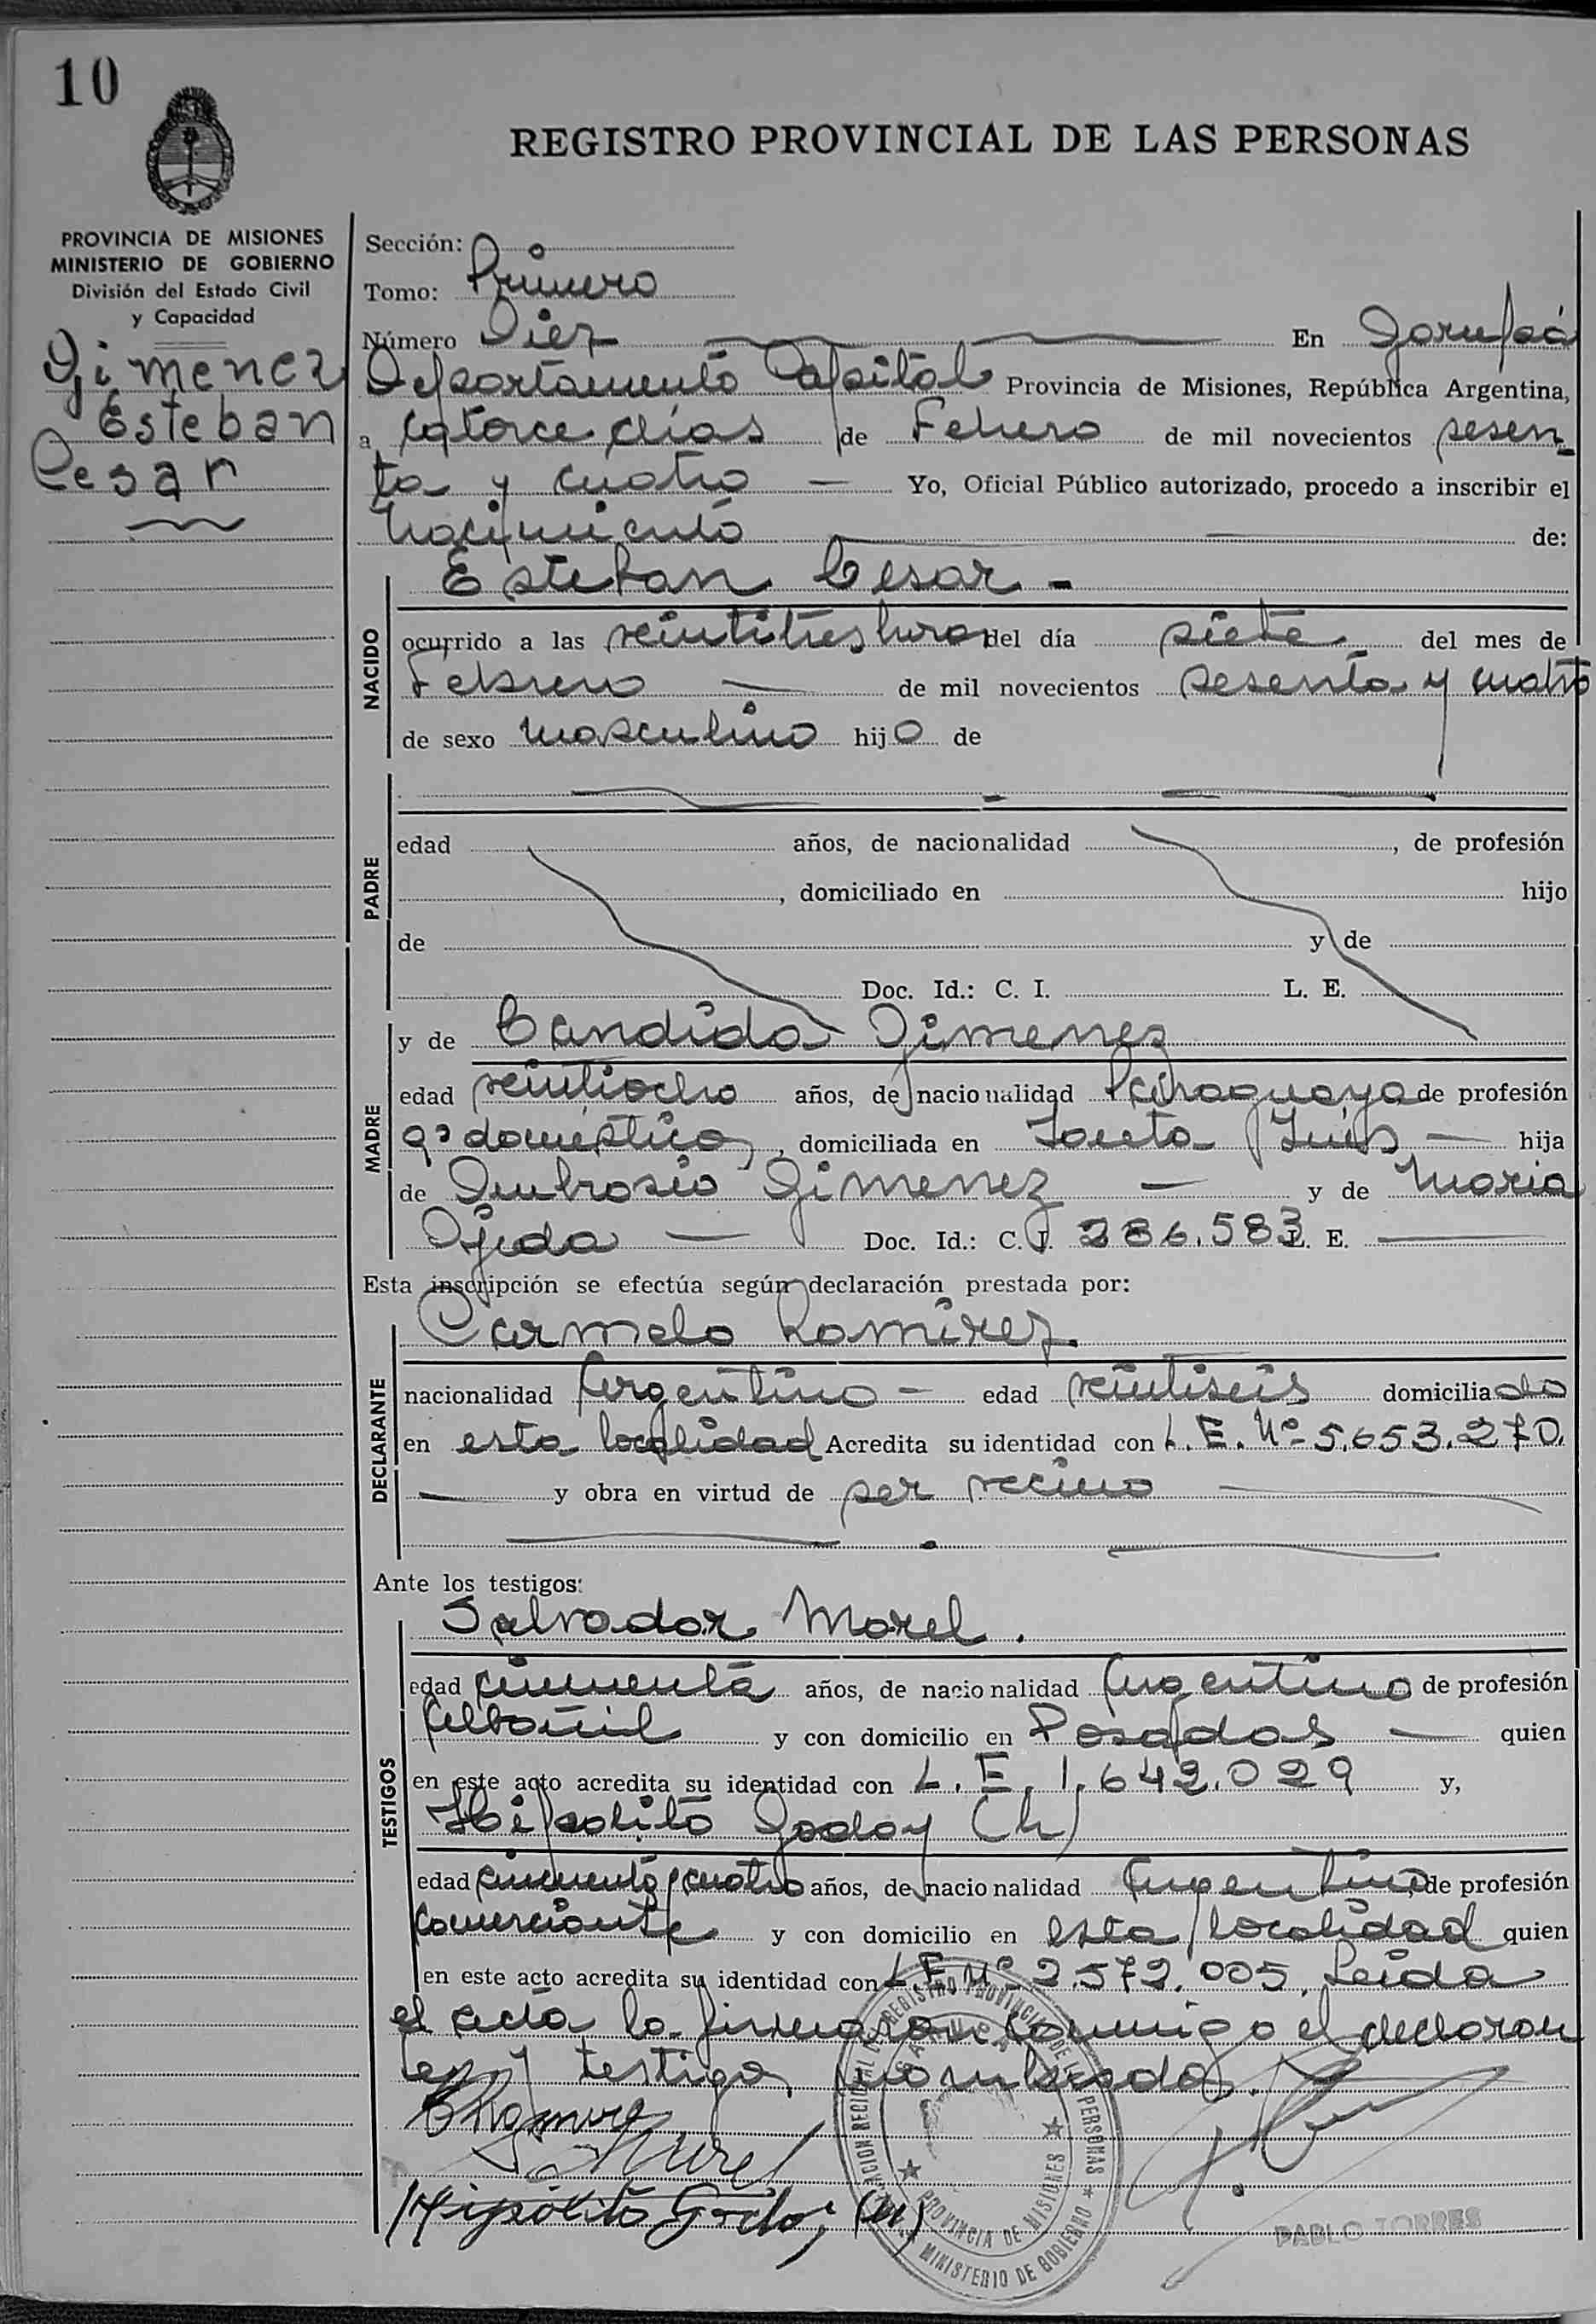 10
REGISTRO PROVINCIAL DE LAS PERSONAS
PROVINCIA DE MISIONES
MINISTERIO DE GOBIERNO
División del Estado Civil
y Capacidad
Gimenez
Esteban
Cesar
Sección:
Tomo: Primero
Número Diez En Garupá
Departamento Capital Provincia de Misiones, República Argentina,
a catorce dias de Febrero de mil novecientos sesen-
ta y cuatro Yo, Oficial Público autorizado, procedo a inscribir el
Nacimiento de:
Esteban Cesar -
NACIDO
ocurrido a las veintitres hora del día siete del mes de
Febrero de mil novecientos sesenta y cuatro
de sexo masculino hijo de
PADRE
edad años, de nacionalidad , de profesión
, domiciliado en hijo
de y de
Doc. Id.: C. I. L. E.
MADRE
y de Candida Gimenez
edad veintiocho años, de nacionalidad Paraguaya de profesión
qs domesticos, domiciliada en Santa Inés hija
de Ambrosio Gimenez y de Maria
Ojeda Doc. Id.: C. I. 286.583 L. E.
Esta inscripción se efectúa según declaración prestada por:
DECLARANTE
Carmelo Ramirez.
nacionalidad Argentino edad veintiseis domiciliado
en esta localidad Acredita su identidad con L. E. Nº 5.653.270.
y obra en virtud de ser vecino
Ante los testigos:
TESTIGOS
Salvador Morel.
edad cincuenta años, de nacionalidad Argentino de profesión
Albañil y con domicilio en Posadas quien
en este acto acredita su identidad con L. E. 1.642.029 y,
Hipolito Godoy (h)
edad cincuenta y cuatro años, de nacionalidad Argentino de profesión
comerciante y con domicilio en esta localidad quien
en este acto acredita su identidad con L. E. Nº 2.572.005. Leida
el acta la firmaron conmigo el declaran
te y testigos nombrados.
Morel
Hipólito Godoy (h)
REGISTRO PROVINCIAL DE LAS PERSONAS
PROVINCIA DE MISIONES
MINISTERIO DE GOBIERNO
PABLO TORRES